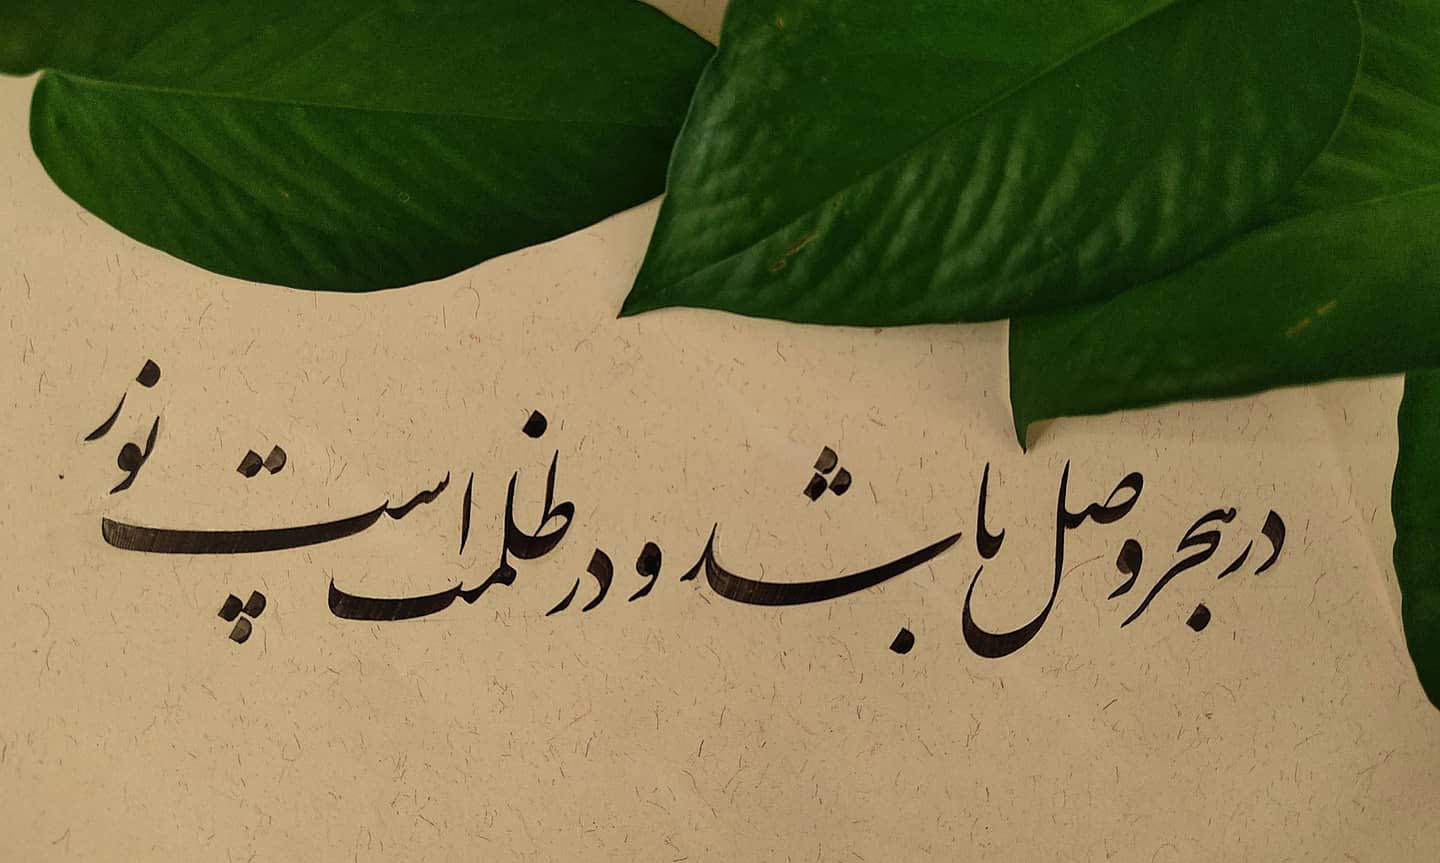 در هجر وصل باشد و در ظلمت است نور